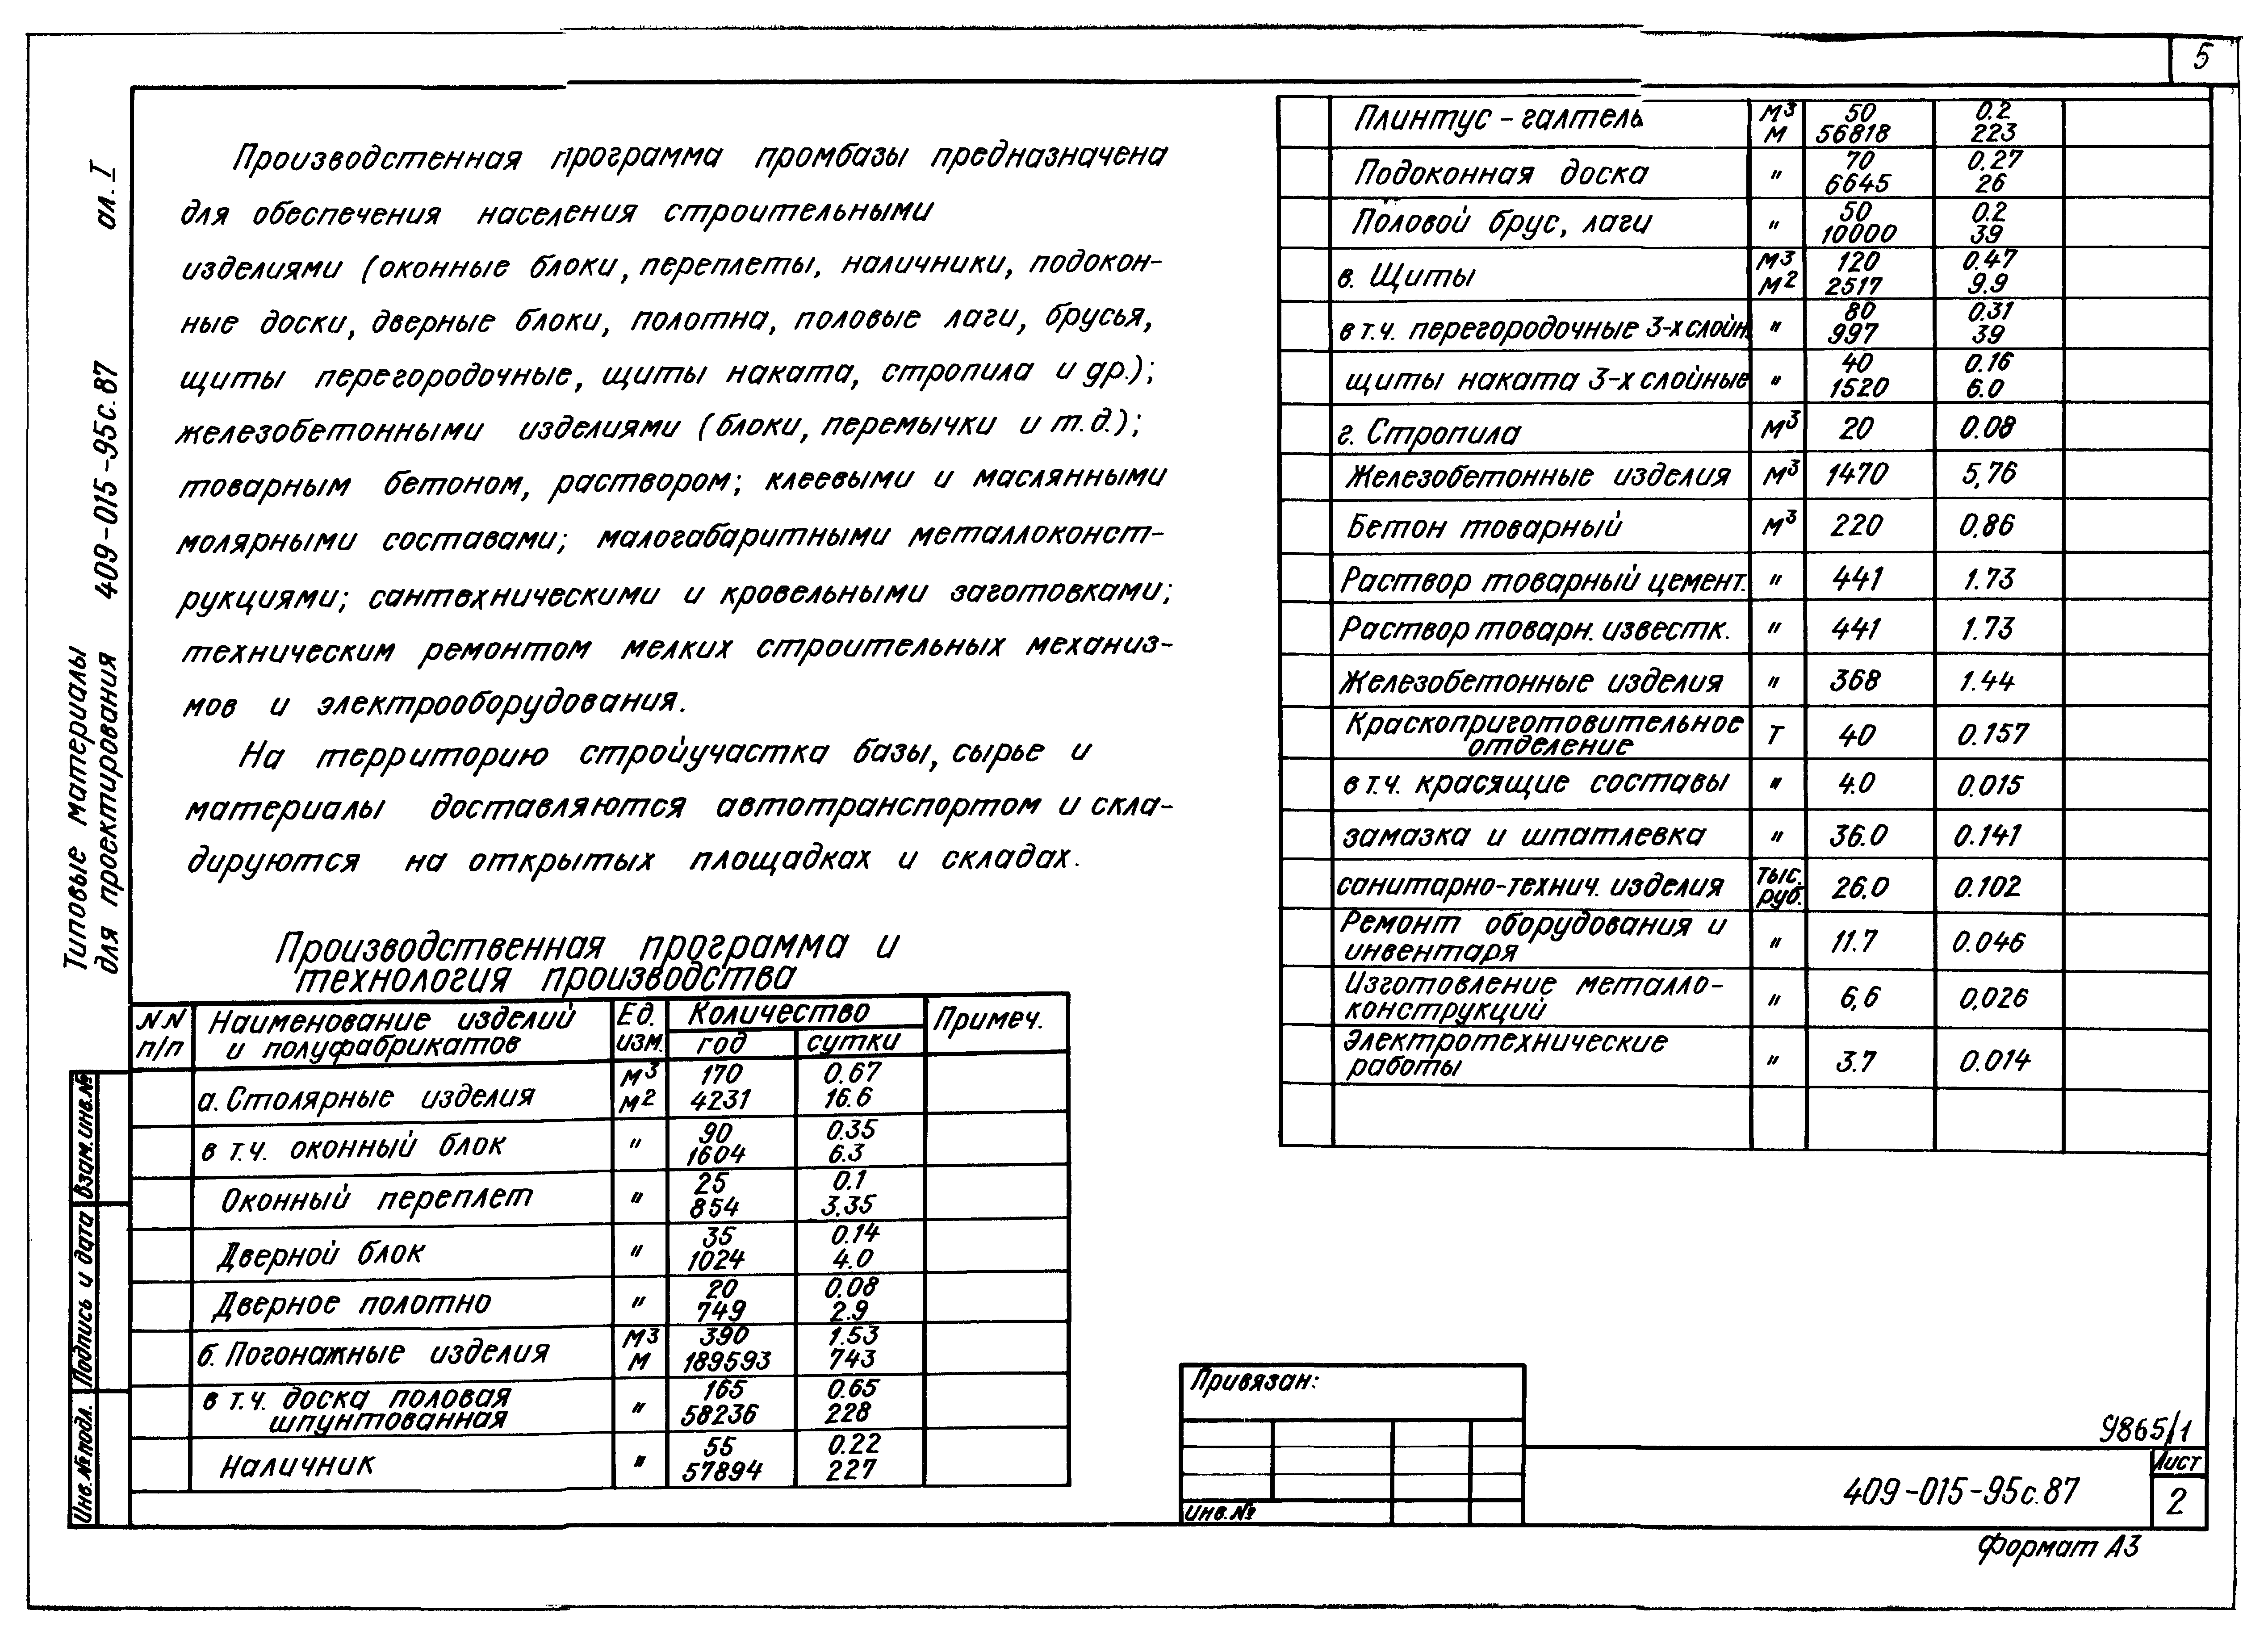 5
Типовые материалы
для проектирования 409-015-95с.87 ал. I
Производстенная программа промбазы предназначена
для обеспечения населения строительными
изделиями (оконные блоки, переплеты, наличники, подокон-
ные доски, дверные блоки, полотна, половые лаги, брусья,
щиты перегородочные, щиты наката, стропила и др.);
железобетонными изделиями (блоки, перемычки и т.д.);
товарным бетоном, раствором; клеевыми и маслянными
молярными составами; малогабаритными металлоконст-
рукциями; сантехническими и кровельными заготовками;
техническим ремонтом мелких строительных механиз-
мов и электрооборудования.
На территорию стройучастка базы, сырье и
материалы доставляются автотранспортом и скла-
дируются на открытых площадках и складах.
Производственная программа и
технология производства
NN п/п Наименование изделий и полуфабрикатов Ед. изм. Количество год сутки Примеч.
а. Столярные изделия м3 170 0.67
м2 4231 16.6
в т.ч. оконный блок " 90 0.35
1604 6.3
Оконный переплет " 25 0.1
854 3.35
Дверной блок " 35 0.14
1024 4.0
Дверное полотно " 20 0.08
749 2.9
б. Погонажные изделия м3 390 1.53
м 189593 743
в т.ч. доска половая " 165 0.65
шпунтованная 58236 228
Наличник " 55 0.22
57894 227
Плинтус - галтель м3 50 0.2
м 56818 223
Подоконная доска " 70 0.27
6645 26
Половой брус, лаги " 50 0.2
10000 39
в. Щиты м3 120 0.47
м2 2517 9.9
в т.ч. перегородочные 3-х слойн. " 80 0.31
997 39
щиты наката 3-х слойные " 40 0.16
1520 6.0
г. Стропила м3 20 0.08
Железобетонные изделия м3 1470 5,76
Бетон товарный м3 220 0.86
Раствор товарный цемент. " 441 1.73
Раствор товарн. известк. " 441 1.73
Железобетонные изделия " 368 1.44
Краскоприготовительное
отделение т 40 0.157
в т.ч. красящие составы " 4.0 0.015
замазка и шпатлевка " 36.0 0.141
санитарно-технич. изделия тыс. руб. 26.0 0.102
Ремонт оборудования и
инвентаря " 11.7 0.046
Изготовление металло-
конструкций " 6,6 0,026
Электротехнические
работы " 3.7 0.014
Взам. инв. №
Подпись и дата
Инв. № подл.
Привязан:
Инв. №
9865/1
409-015-95с.87
Лист
2
Формат А3